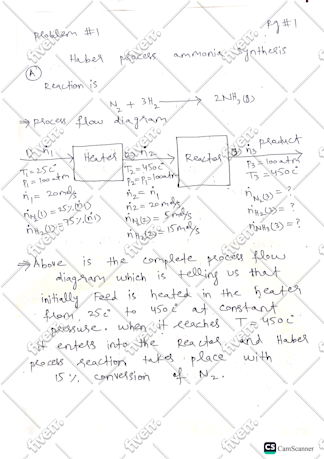 Problem #1
Pg #1
Haber process ammonia synthesis
(A)
Reaction is
N2 + 3H2 → 2NH3(g)
⇒ process flow diagram
① ṅ1
Heater
② ṅ2
Reactor
③ ṅ3 product
T1 = 25C°
P1 = 100atm
ṅ1 = 20mol/s
ṅN2(1) = 25%(ṅ1)
ṅH2(1) = 75%(ṅ1)
T2 = 450C°
P2 = P1 = 100atm
ṅ2 = ṅ1
ṅ2 = 20mol/s
ṅN2(2) = 5mol/s
ṅH2(2) = 15mol/s
P3 = 100atm
T3 = 450C°
ṅN2(3) = ?
ṅH2(3) = ?
ṅNH3(3) = ?
⇒ Above is the complete process flow
diagram which is telling us that
initially Feed is heated in the heater
from 25C° to 450C° at constant
pressure. when it reaches T = 450C°
it enters into the Reactor and Haber
process reaction takes place with
15% conversion of N2.
fiverr.
CS CamScanner